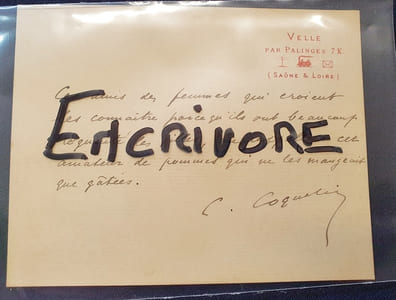 VELLE
PAR PALINGES 7K
(SAÔNE & LOIRE)
des femmes qui croient
les connaître parce qu'ils ont beaucoup
ENCRIVORE
cet
amateur de pommes qui ne les mangeait
que gâtées.
C. Coquelin